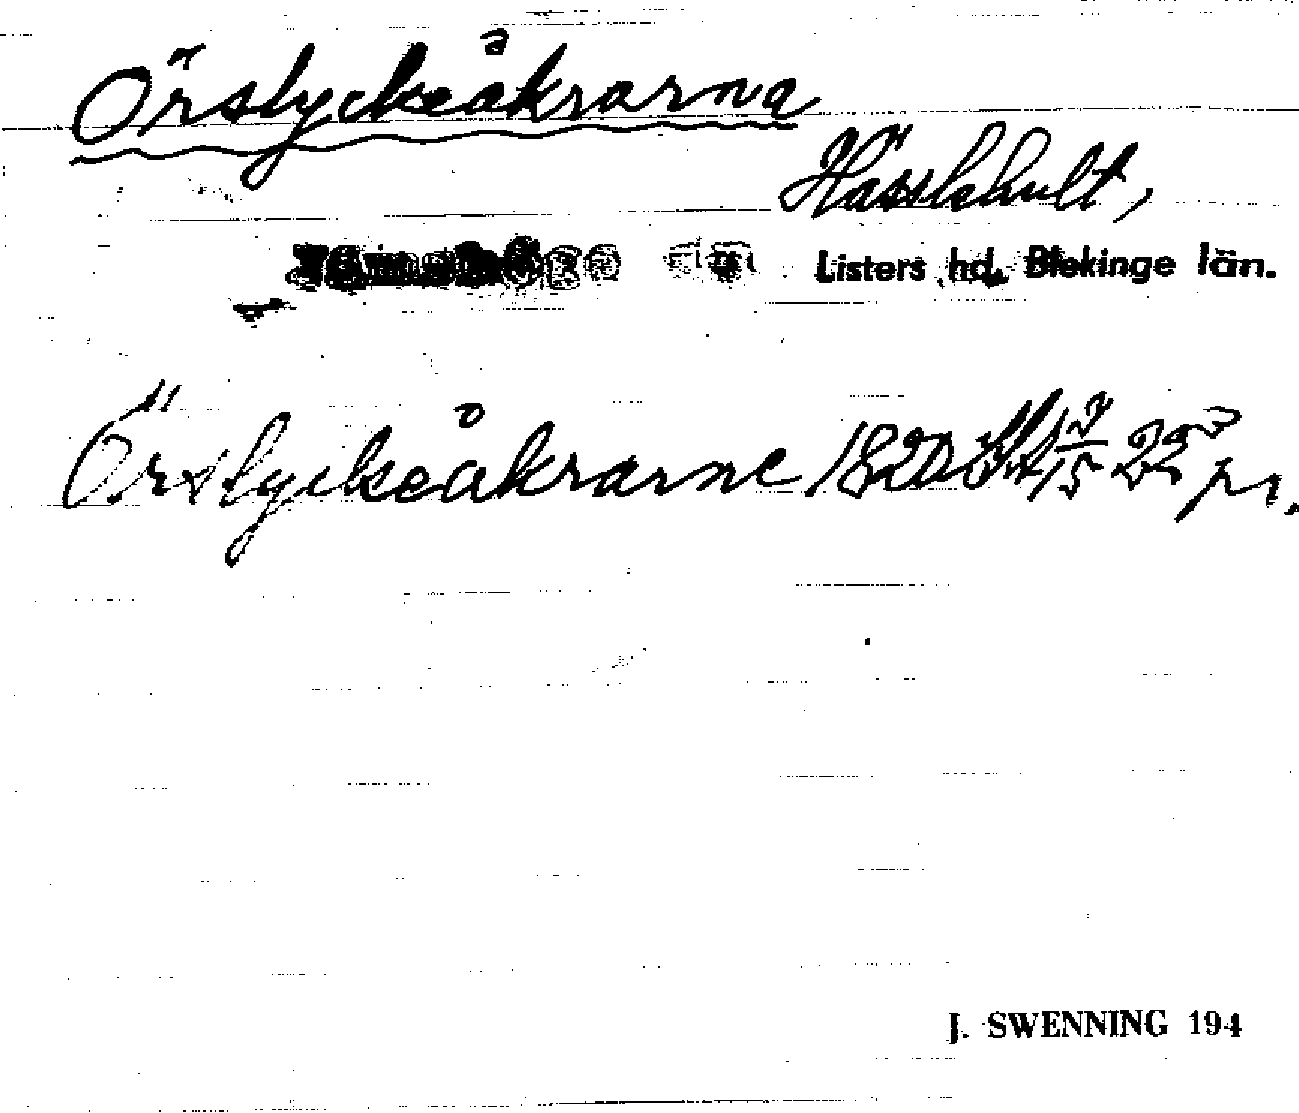 Örslyckeåkrarna
Hässlehult,
Listers hd, Blekinge län.
Örslyckeåkrarne 1820
J. SWENNING 194